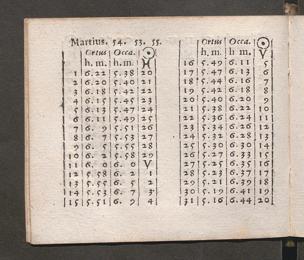 Martius. 54. 53. 55.
Ortus Occa. ☉
h. m. h. m. ♓
1 6.22 5.38 20
2 6.20 5.40 21
3 6.18 5.42 22
4 6.15 5.45 23
5 6.13 5.47 24
6 6.11 5.49 25
7 6. 9 5.51 26
8 6. 7 5.53 27
9 6. 5 5.55 28
10 6. 2 5.58 29
11 6. 0 6. 0 V
12 5.58 6. 2 1
13 5.55 6. 5 2
14 5.53 6. 7 3
15 5.51 6. 9 4
Ortus Occa. ☉
h. m. h m. V
16 5.49 6.11 5
17 5.47 6.13 6
18 5.44 6.16 7
19 5.42 6.18 8
20 5.40 6.20 9
21 5.38 6.22 10
22 5.36 6.24 11
23 5.34 6.26 12
24 5.32 6.28 13
25 5.30 6.30 14
26 5.27 6.33 15
27 5.25 6.35 16
28 5.23 6.37 18
29 5.21 6.39 18
30 5.18 6.42 19
31 5.16 6.44 20